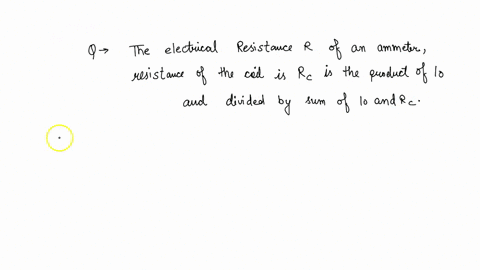 Q → The electrical Resistance R of an ammeter,
resistance of the coil is Rc is the product of 10
and divided by sum of 10 and Rc.